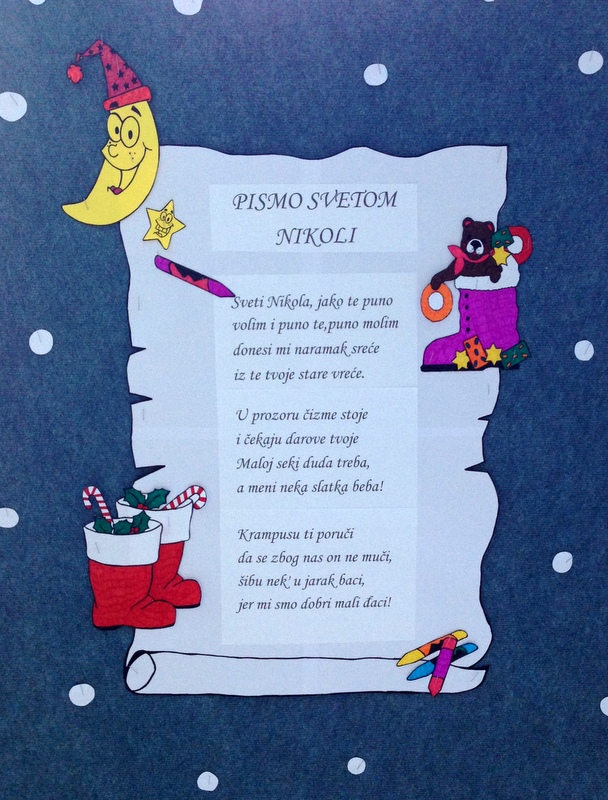 PISMO SVETOM
NIKOLI
Sveti Nikola, jako te puno
volim i puno te,puno molim
donesi mi naramak sreće
iz te tvoje stare vreće.
U prozoru čizme stoje
i čekaju darove tvoje
Maloj seki duda treba,
a meni neka slatka beba!
Krampusu ti poruči
da se zbog nas on ne muči,
šibu nek' u jarak baci,
jer mi smo dobri mali đaci!